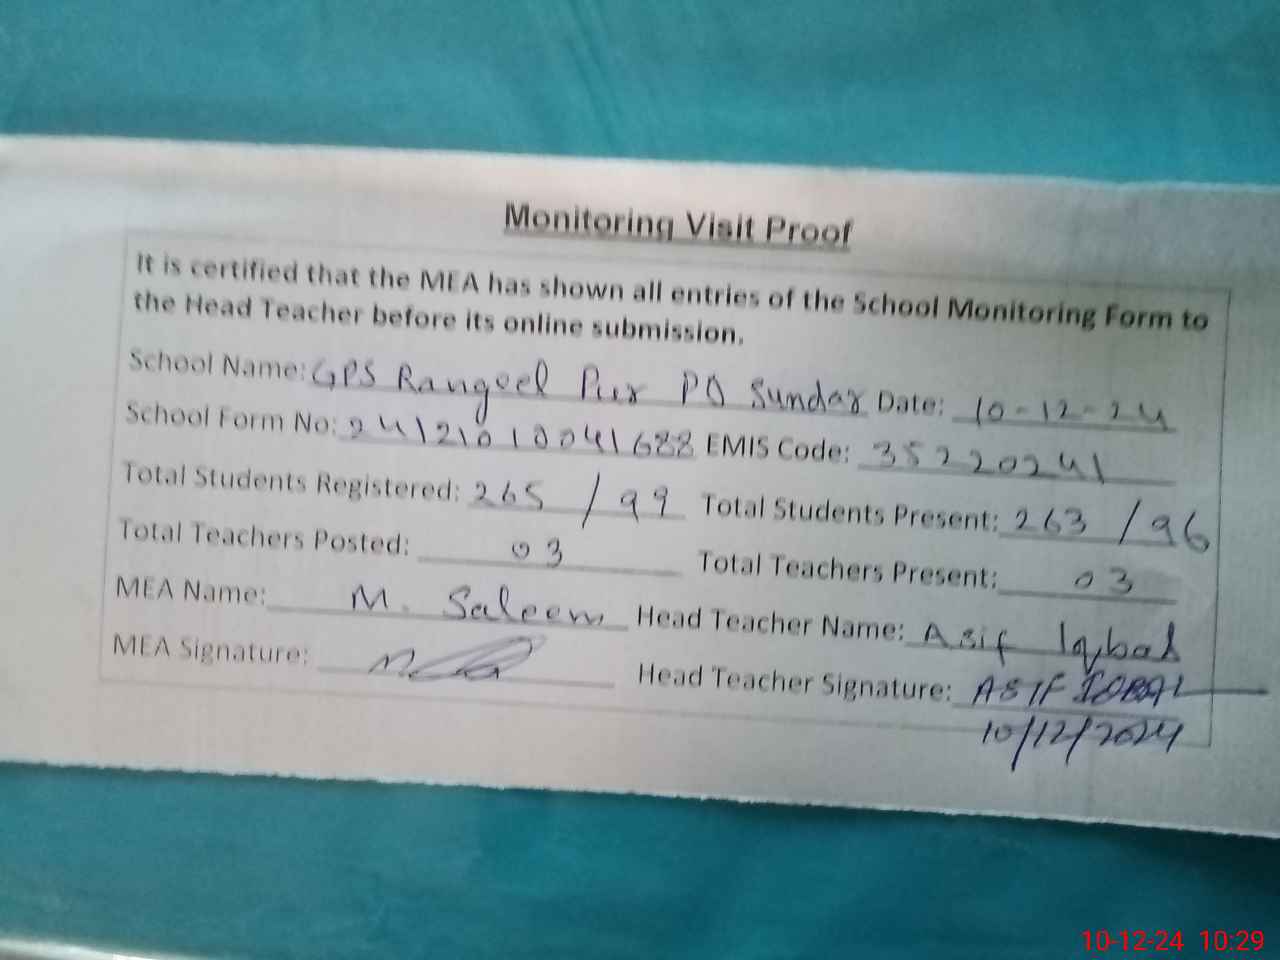 Monitoring Visit Proof
It is certified that the MEA has shown all entries of the School Monitoring Form to
the Head Teacher before its online submission.
School Name: GPS Rangeel Pur PO Sundar Date: 10-12-24
School Form No: 24121010041688 EMIS Code: 35220241
Total Students Registered: 265 / 99 Total Students Present: 263 / 96
Total Teachers Posted: 03 Total Teachers Present: 03
MEA Name: M. Saleem Head Teacher Name: Asif Iqbal
MEA Signature: Head Teacher Signature: ASIF IQBAL
10/12/2024
10-12-24 10:29